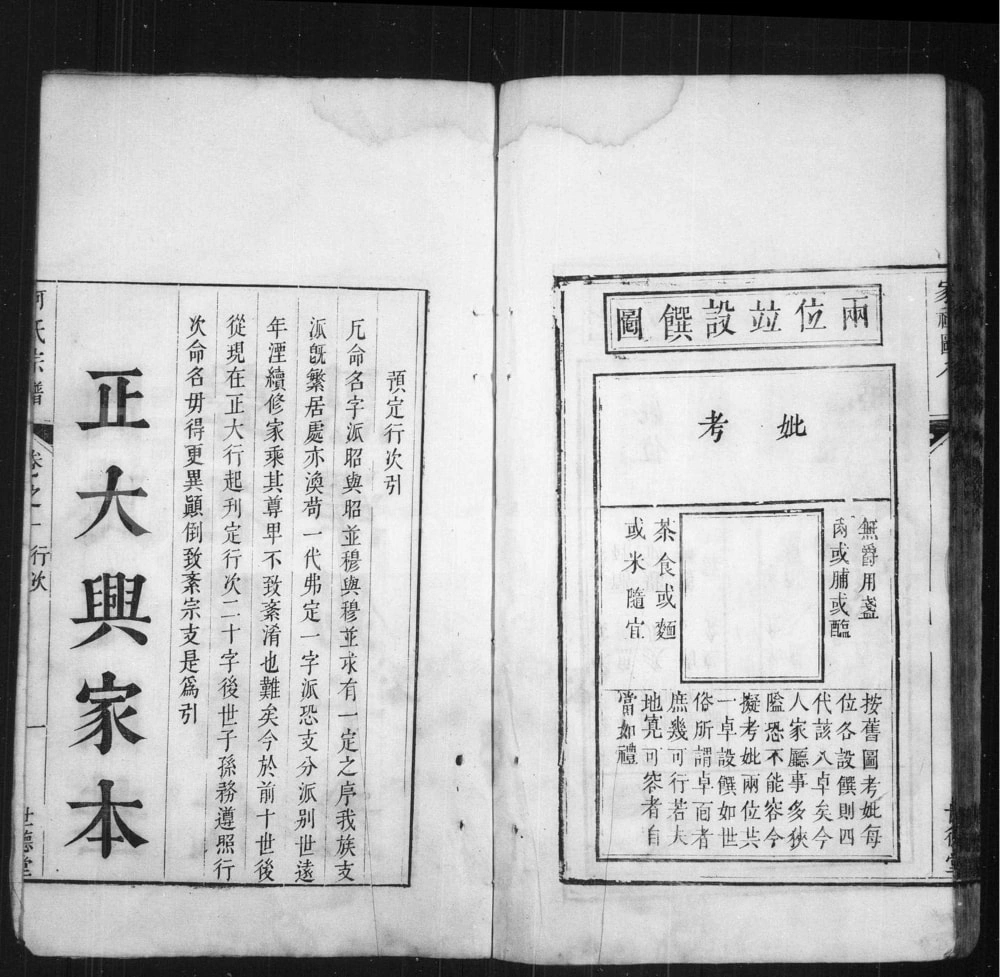 家祠圖
兩位竝設饌圖
妣 考
無爵用盞
肉或脯或醢
茶食或麵
或米隨宜
按舊圖考妣每
位各設饌則四
代該八卓矣今
人家廳事多狹
隘恐不能容今
擬考妣兩位共
一卓設饌如世
俗所謂卓面者
庶幾可行若夫
地寬可容者自
當如禮
世德堂
預定行次引
凡命名字派昭與昭並穆與穆並求有一定之序我族支
派旣繁居處亦渙苟一代弗定一字派恐支分派别世遠
年湮續修家乘其尊卑不致紊淆也難矣今於前十世後
從現在正大行起刋定行次二十字後世子孫務遵照行
次命名毋得更異顚倒致紊宗支是爲引
正大興家本
何氏宗譜
卷之一 行次
一
世德堂